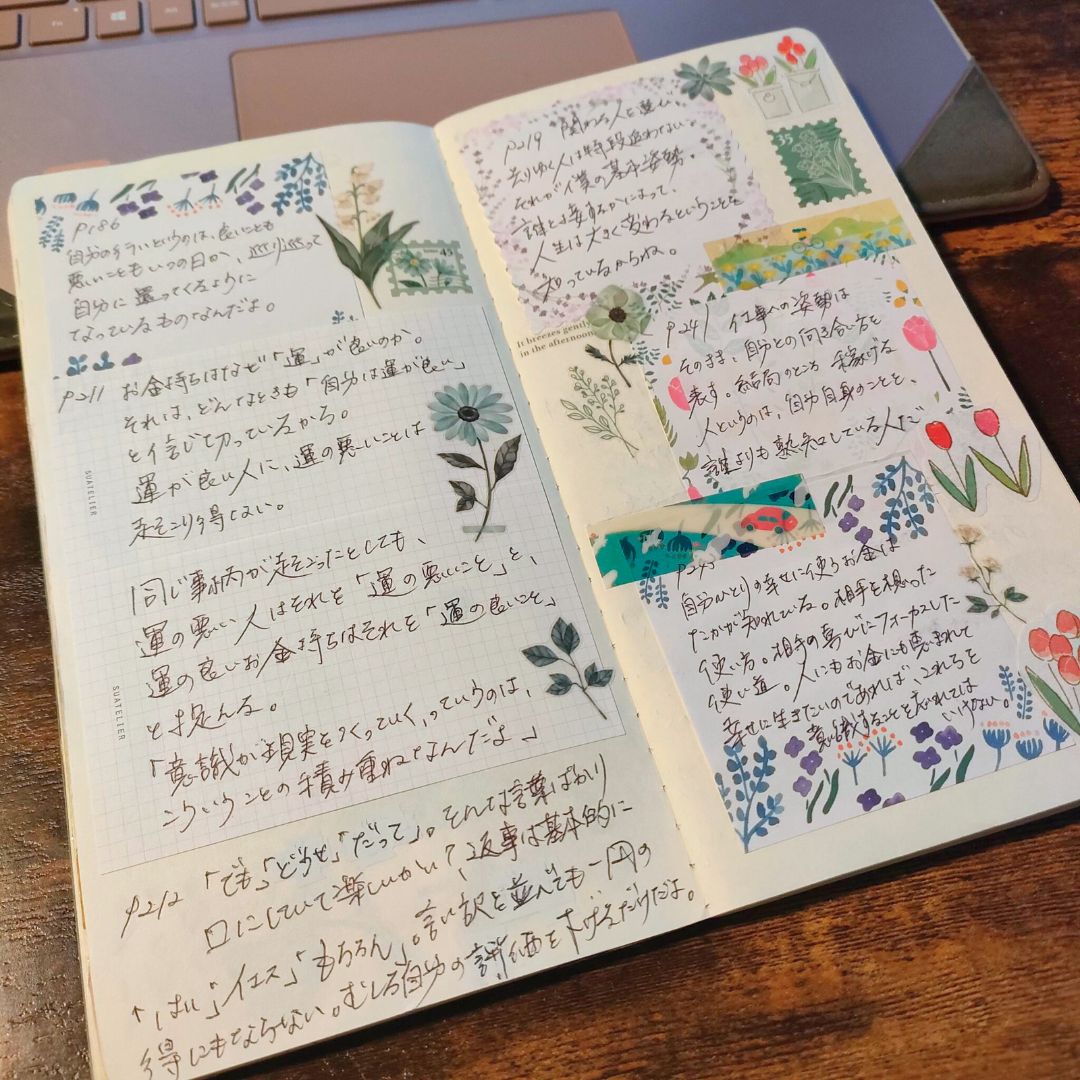 p186
自分の行いというのは、良いことも
悪いこともいつの日か、巡り巡って
自分に還ってくるように
なっているものなんだよ。
45
p211 お金持ちはなぜ「運」が良いのか。
それは、どんなときも「自分は運が良い」
と信じ切っているから。
運が良い人に、運の悪いことは
起こり得ない。
同じ事柄が起こったとしても、
運の悪い人はそれを「運の悪いこと」と、
運の良いお金持ちはそれを「運の良いこと」
と捉える。
「意識が現実をつくっていく、っていうのは、
こういうことの積み重ねなんだよ」
SUATELIER
SUATELIER
p212 「でも」「どうせ」「だって」。そんな言葉ばかり
口にしていて楽しいかい?返事は基本的に
「はい」「イエス」「もちろん」。言い訳を並べても一円の
得にもならない。むしろ自分の評価を下げるだけだよ。
p219 関わる人を選び、
去りゆく人は特段追わないと
それが僕の基本姿勢。
誰と接するかによって、
人生は大きく変わるということを
知っているからね。
35
It breezes gently
in the afternoon
p241 仕事への姿勢は
そのまま、自分との向き合い方を
表す。結局のところ稼げる
人というのは、自分自身のことを、
誰よりも熟知している人だ
自分ひとりの幸せに使うお金は
たかが知れている。相手を想った
使い方。相手の喜びにフォーカスした
使い道。人にもお金にも恵まれて
幸せに生きたいのであれば、これらを
意識することを忘れては
いけない。
Fn
Alt